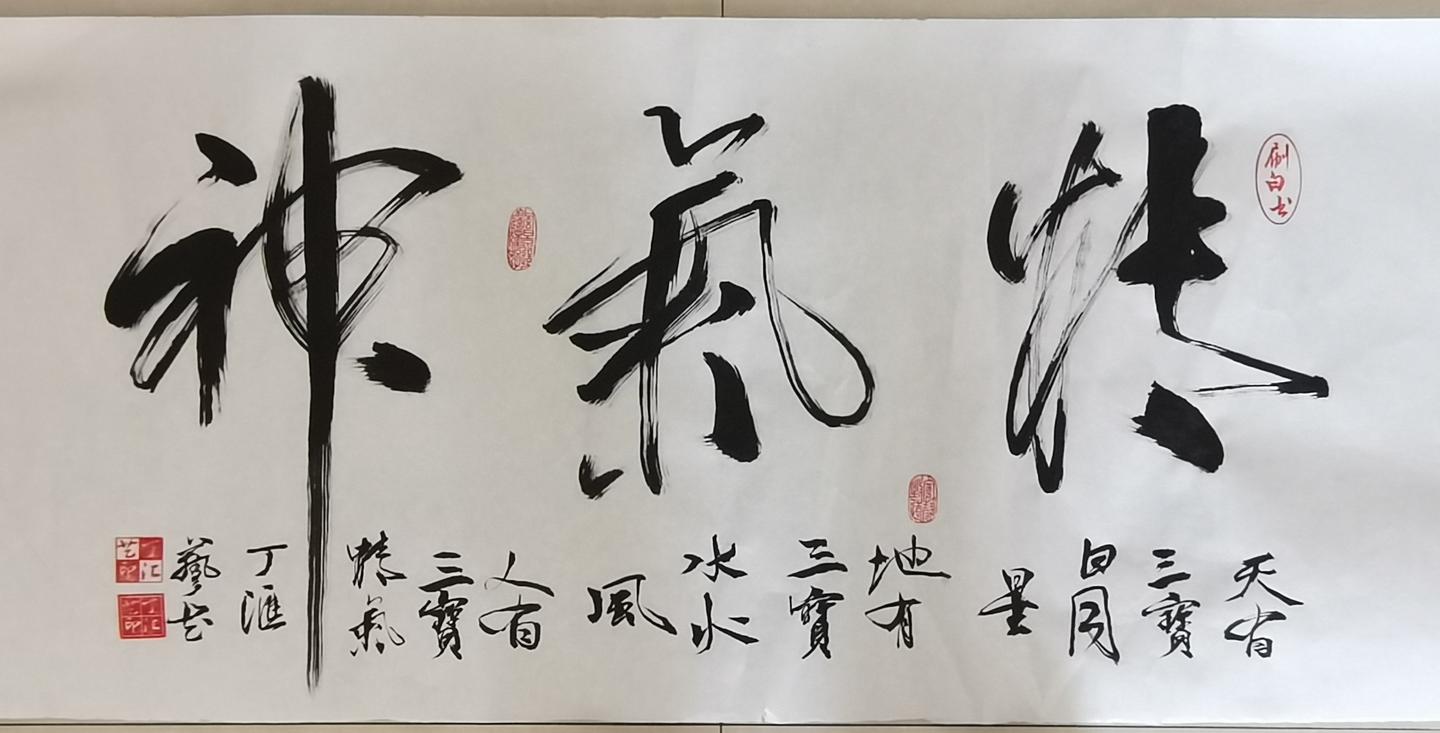 精氣神
天有
三寶
日月
星
地有
三寶
水火
風
人有
三寶
精氣
丁滙
藝书
丁汇艺印